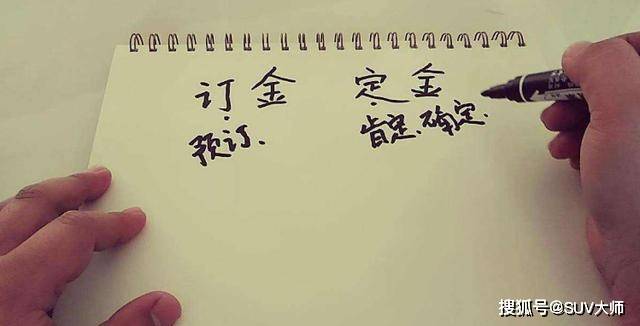 订金 定金
预订. 肯定、确定.
搜狐号@SUV大师